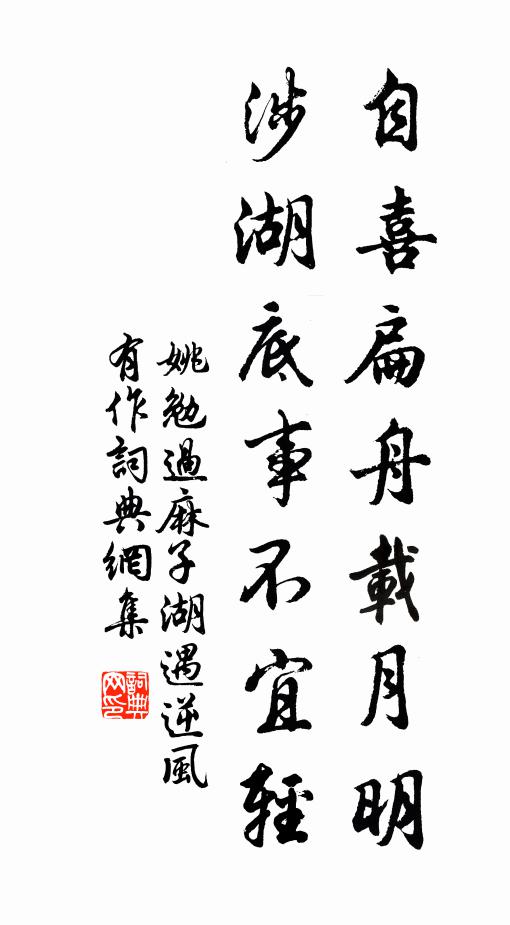 自喜扁舟載月明
涉湖底事不宜輕
姚勉過麻子湖遇逆風
有作詞典網集
詞典
网印